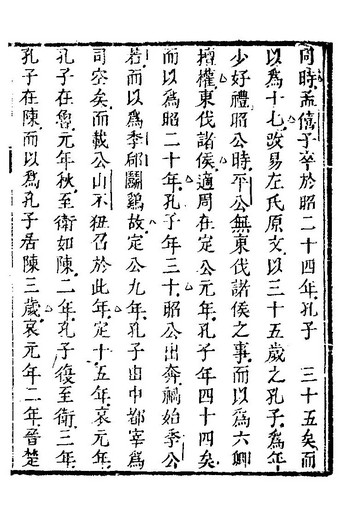 同時孟僖子卒於昭二十四年孔子　三十五矣而
以爲十七改易左氏原文以三十五歲之孔子爲年
少好禮昭公時平公無東伐諸侯之事而以爲六卿
擅權東伐諸侯適周在定公元年孔子年四十四矣
而以爲昭二十年孔子年三十昭公出奔禍始季公
若而以爲季郈鬭鷄故定公九年孔子由中都宰爲
司空矣而載公山不狃召於此年定十五年哀元年
孔子在魯元年秋至衛如陳二年孔子復至衛三年
孔子在陳而以爲孔子居陳三歲哀元年二年晉楚